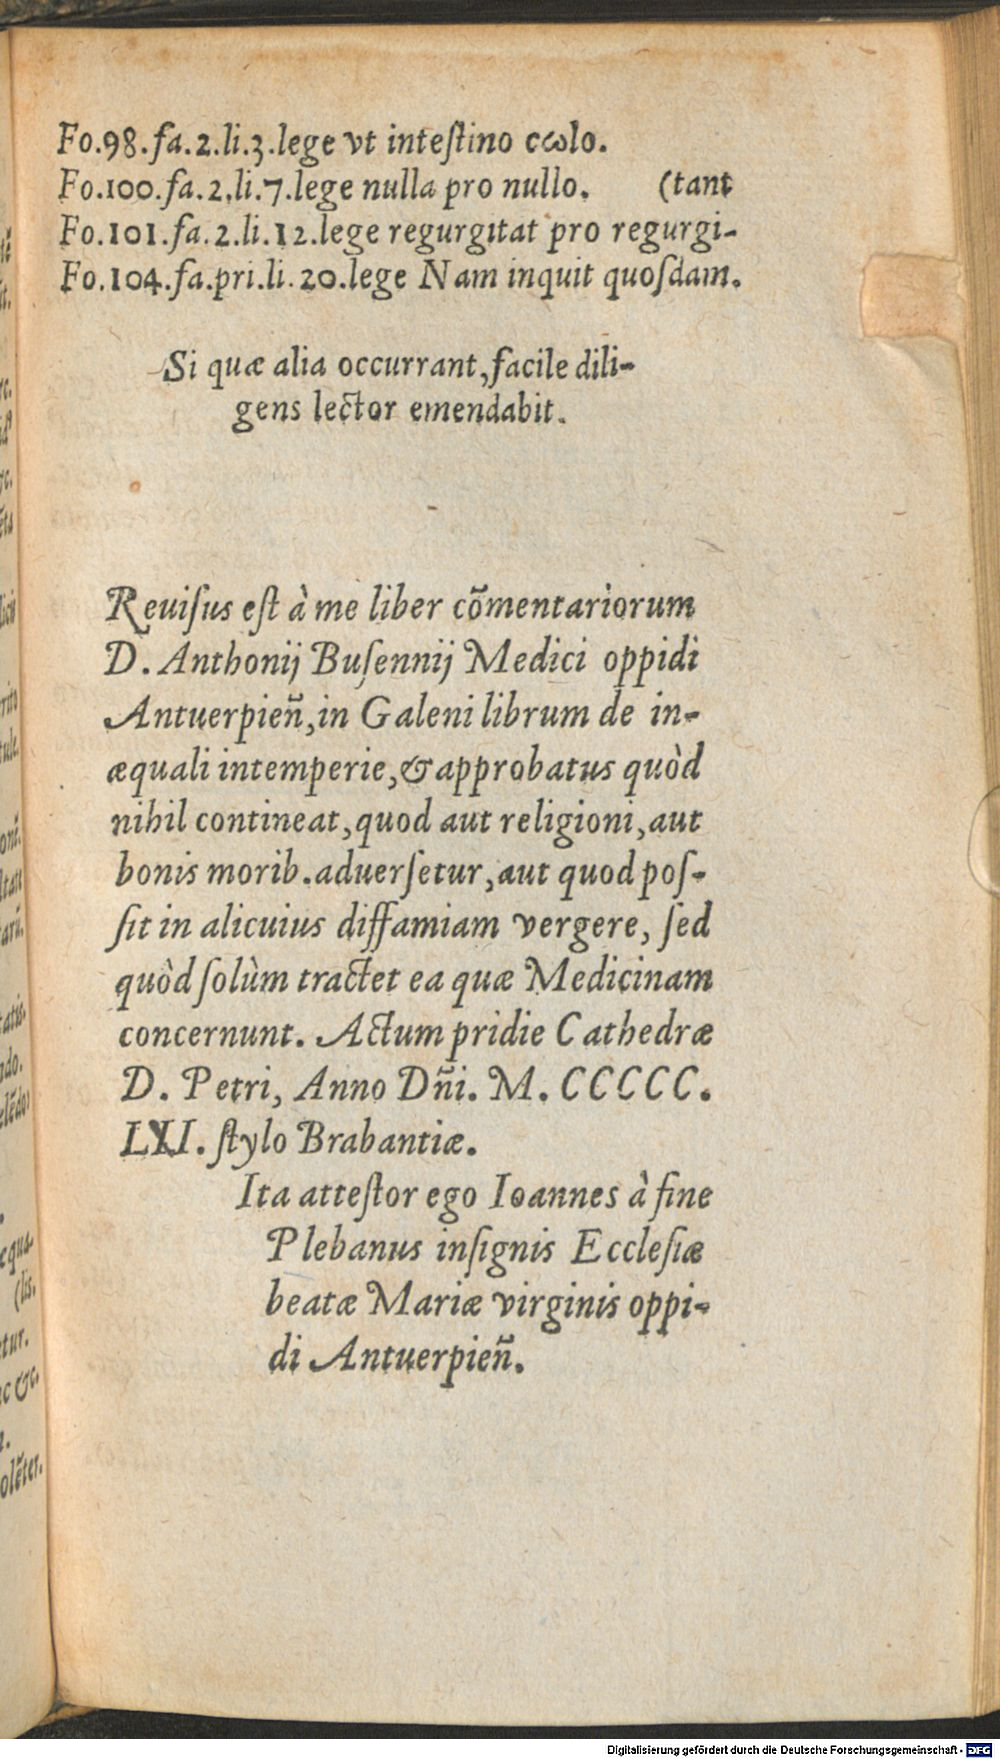 Fo.98.fa.2.li.3.lege vt inteſtino cωlo.
Fo.100.fa.2.li.7.lege nulla pro nullo. (tant
Fo.101.fa.2.li.12.lege regurgitat pro regurgi-
Fo.104.fa.pri.li.20.lege Nam inquit quoſdam.
Si quæ alia occurrant, facile dili-
gens lector emendabit.
Reuiſus eſt à me liber cõmentariorum
D. Anthonij Buſennij Medici oppidi
Antuerpien̄, in Galeni librum de in-
æquali intemperie, & approbatus quòd
nihil contineat, quod aut religioni, aut
bonis morib. aduerſetur, aut quod poſ-
ſit in alicuius diffamiam vergere, ſed
quòd ſolùm tractet ea quæ Medicinam
concernunt. Actum pridie Cathedræ
D. Petri, Anno Dn̄i. M. CCCCC.
LXI. ſtylo Brabantiæ.
Ita atteſtor ego Ioannes à fine
Plebanus inſignis Eccleſiæ
beatæ Mariæ virginis oppi-
di Antuerpien̄.
Digitalisierung gefördert durch die Deutsche Forschungsgemeinschaft - DFG